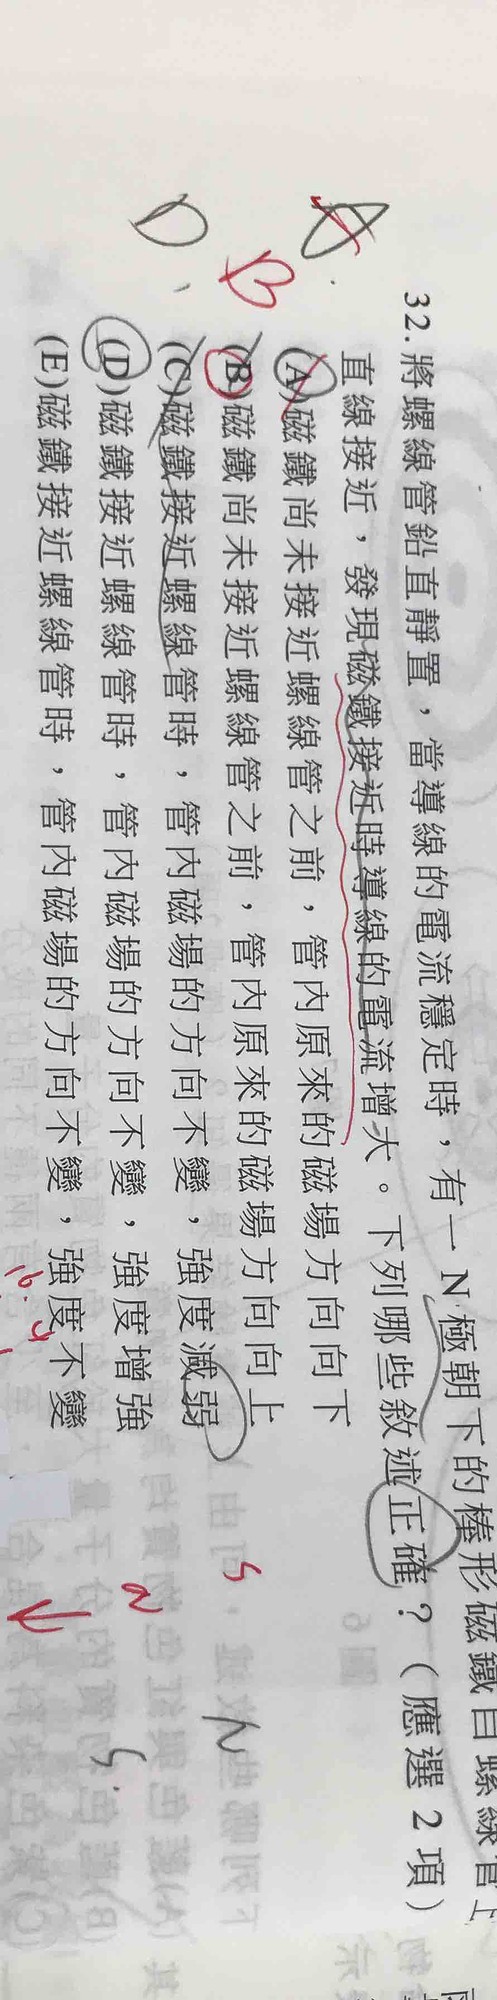 32.將螺線管鉛直靜置，當導線的電流穩定時，有一N極朝下的棒形磁鐵自螺線管上
直線接近，發現磁鐵接近時導線的電流增大。下列哪些敘述正確？（應選2項）
(A)磁鐵尚未接近螺線管之前，管內原來的磁場方向向下
(B)磁鐵尚未接近螺線管之前，管內原來的磁場方向向上
(C)磁鐵接近螺線管時，管內磁場的方向不變，強度減弱
(D)磁鐵接近螺線管時，管內磁場的方向不變，強度增強
(E)磁鐵接近螺線管時，管內磁場的方向不變，強度不變
A
B
D
S
N
N
S